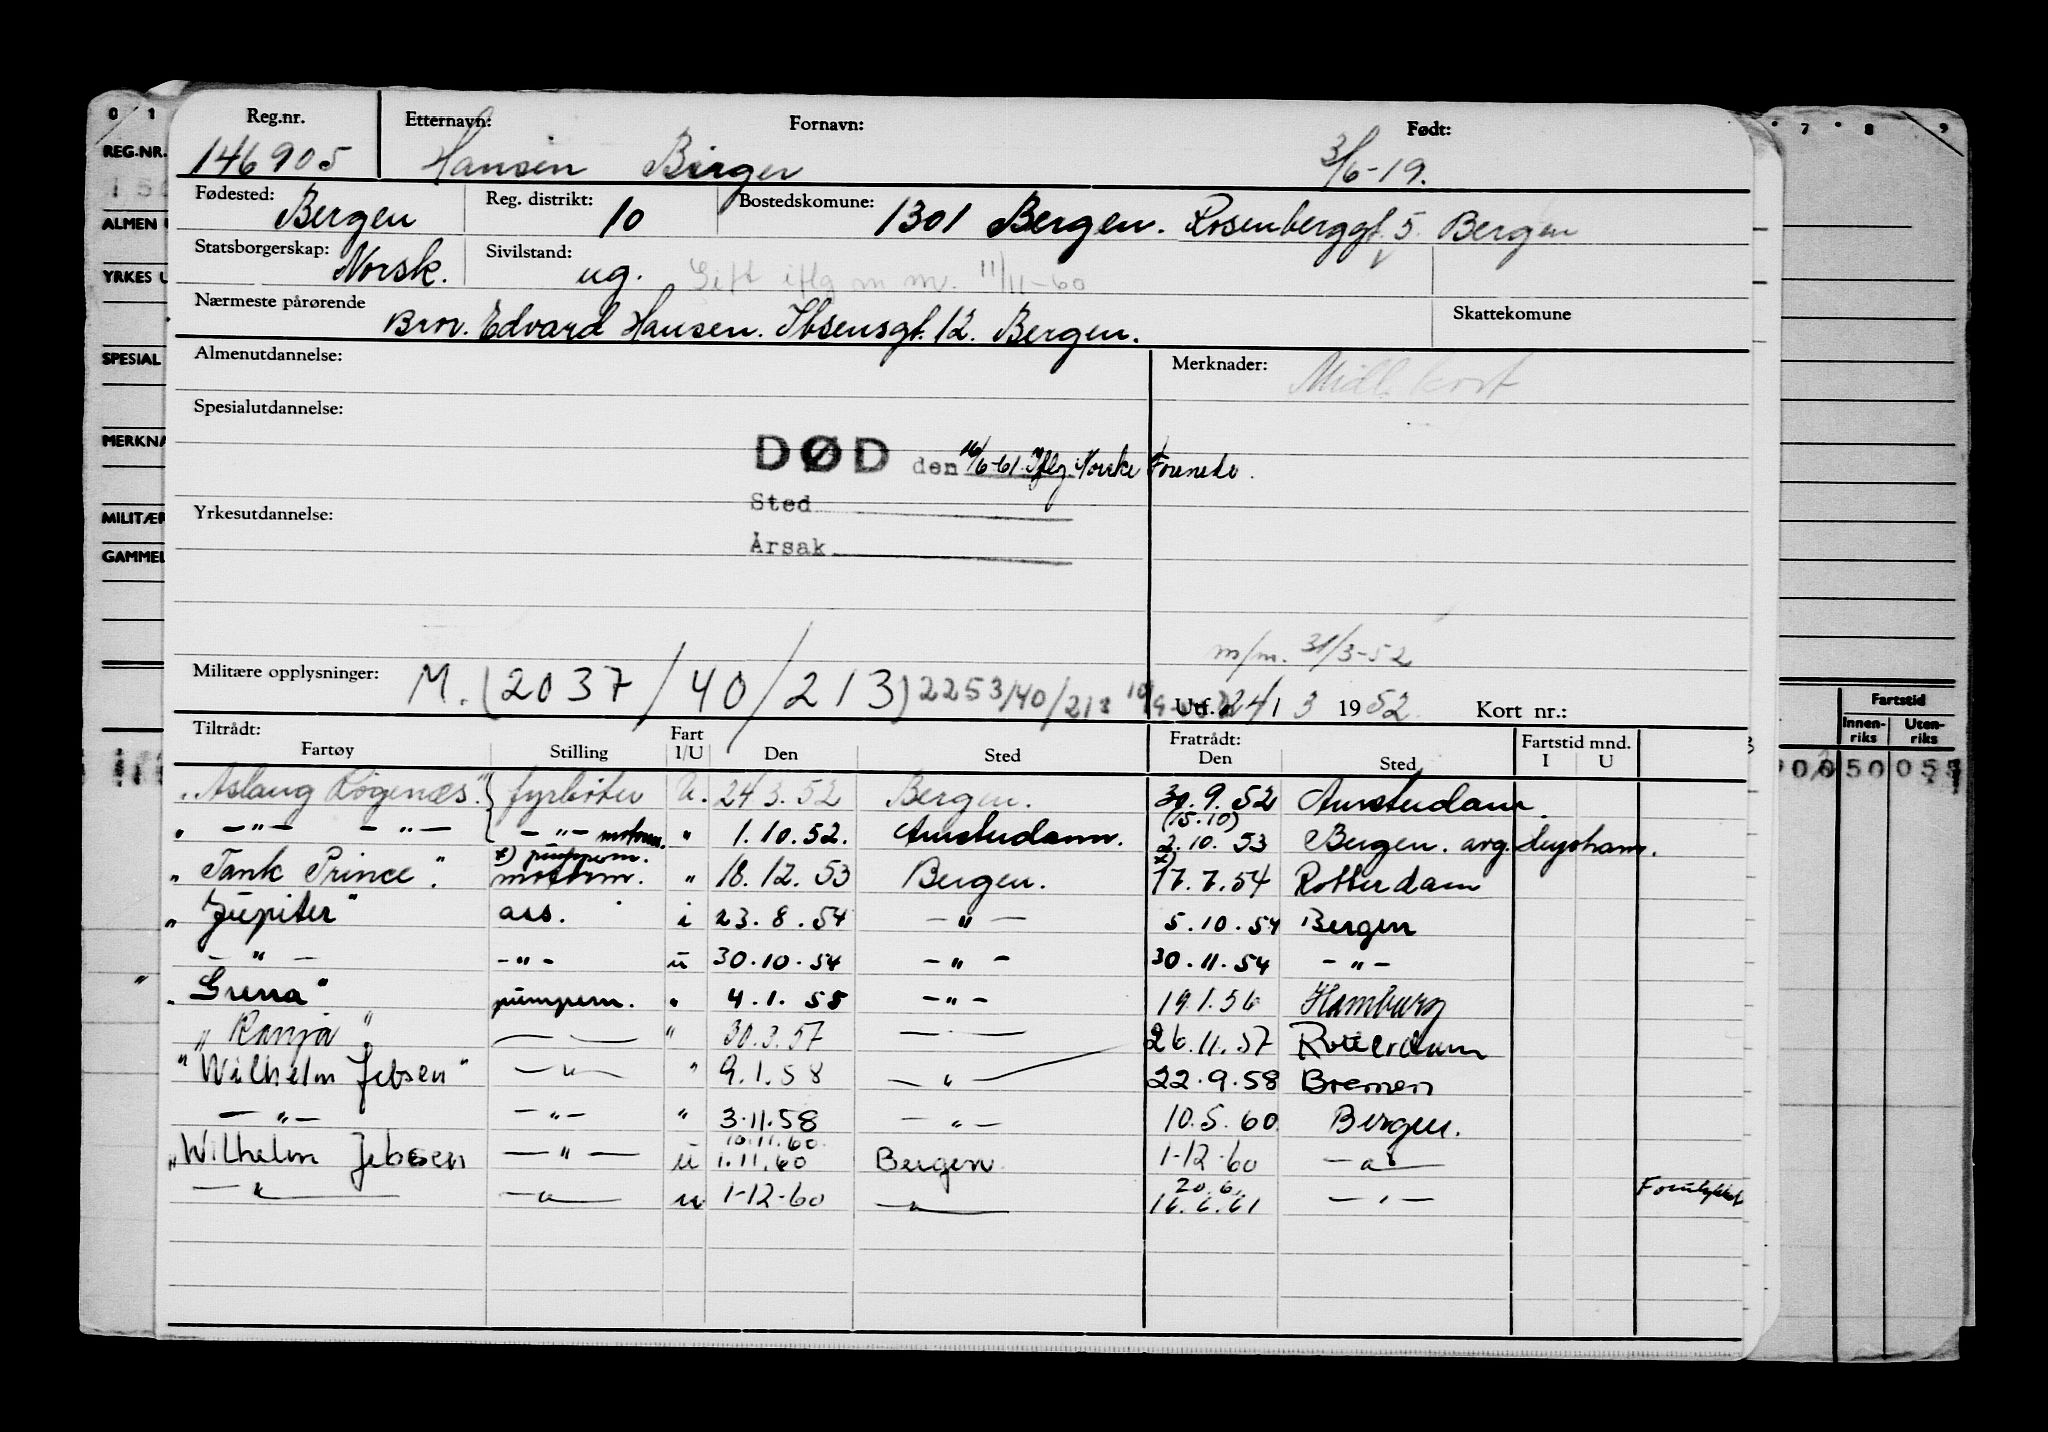 Reg.nr. Etternavn: Fornavn: Født:
146905 Hansen Birger 3/6-19.
Fødested: Bergen Reg. distrikt: 10 Bostedskomune: 1301 Bergen. Rosenberggt. 5. Bergen
Statsborgerskap: Norsk. Sivilstand: ug. Gift iflg m m. 11/11-60
Nærmeste pårørende Bror. Edvard Hansen. Ibsensgt. 12. Bergen. Skattekomune
Almenutdannelse: Merknader: Midl. kort
Spesialutdannelse:
DØD den 16/6-61. Iflg. Norske Forenede.
Sted
Yrkesutdannelse:
Årsak
m/m. 31/3-52
Militære opplysninger: M. (2037/40/213) 2253/40/213 Utf. 24/3 1952 Kort nr.:
Tiltrådt: Fratrådt:
Fartøy Stilling Fart I/U Den Sted Den Sted Fartstid mnd. I U
"Aslaug Rogenæs" fyrbøter U. 24.3.52 Bergen. 30.9.52 Amsterdam.
(15.10)
" -"- -"- -"- motorm. " 1.10.52. Amsterdam. 2.10.53 Bergen. avg. Haugesham.
x) pumpem. x)
"Tank Prince". motorm. " 18.12.53 Bergen. 17.7.54 Rotterdam
"Jupiter" ass. i 23.8.54 -"- 5.10.54 Bergen
-"- -"- u 30.10.54 -"- 30.11.54 -"-
"Grena" pumpem. " 4.1.55 -"- 19.1.56 Hamburg
"Ranja" — " 30.3.57 — 26.11.57 Rotterdam
"Wilhelm Jebsen" -"- " 9.1.58 -"- 22.9.58 Bremen
-"- -"- " 3.11.58 -"- 10.5.60 Bergen.
10.11.60
"Wilhelm Jebsen -"- u 1.11.60 Bergen 1-12-60 -"-
20.6.
-"- -"- u 1-12-60 -"- 16.6.61 -"- Forulykket
0 1
REG.NR.
ALMEN
YRKES U
SPESIAL
MERKNA
MILITÆR
GAMMEL
7 8 9
Fartstid
Innen-riks Uten-riks